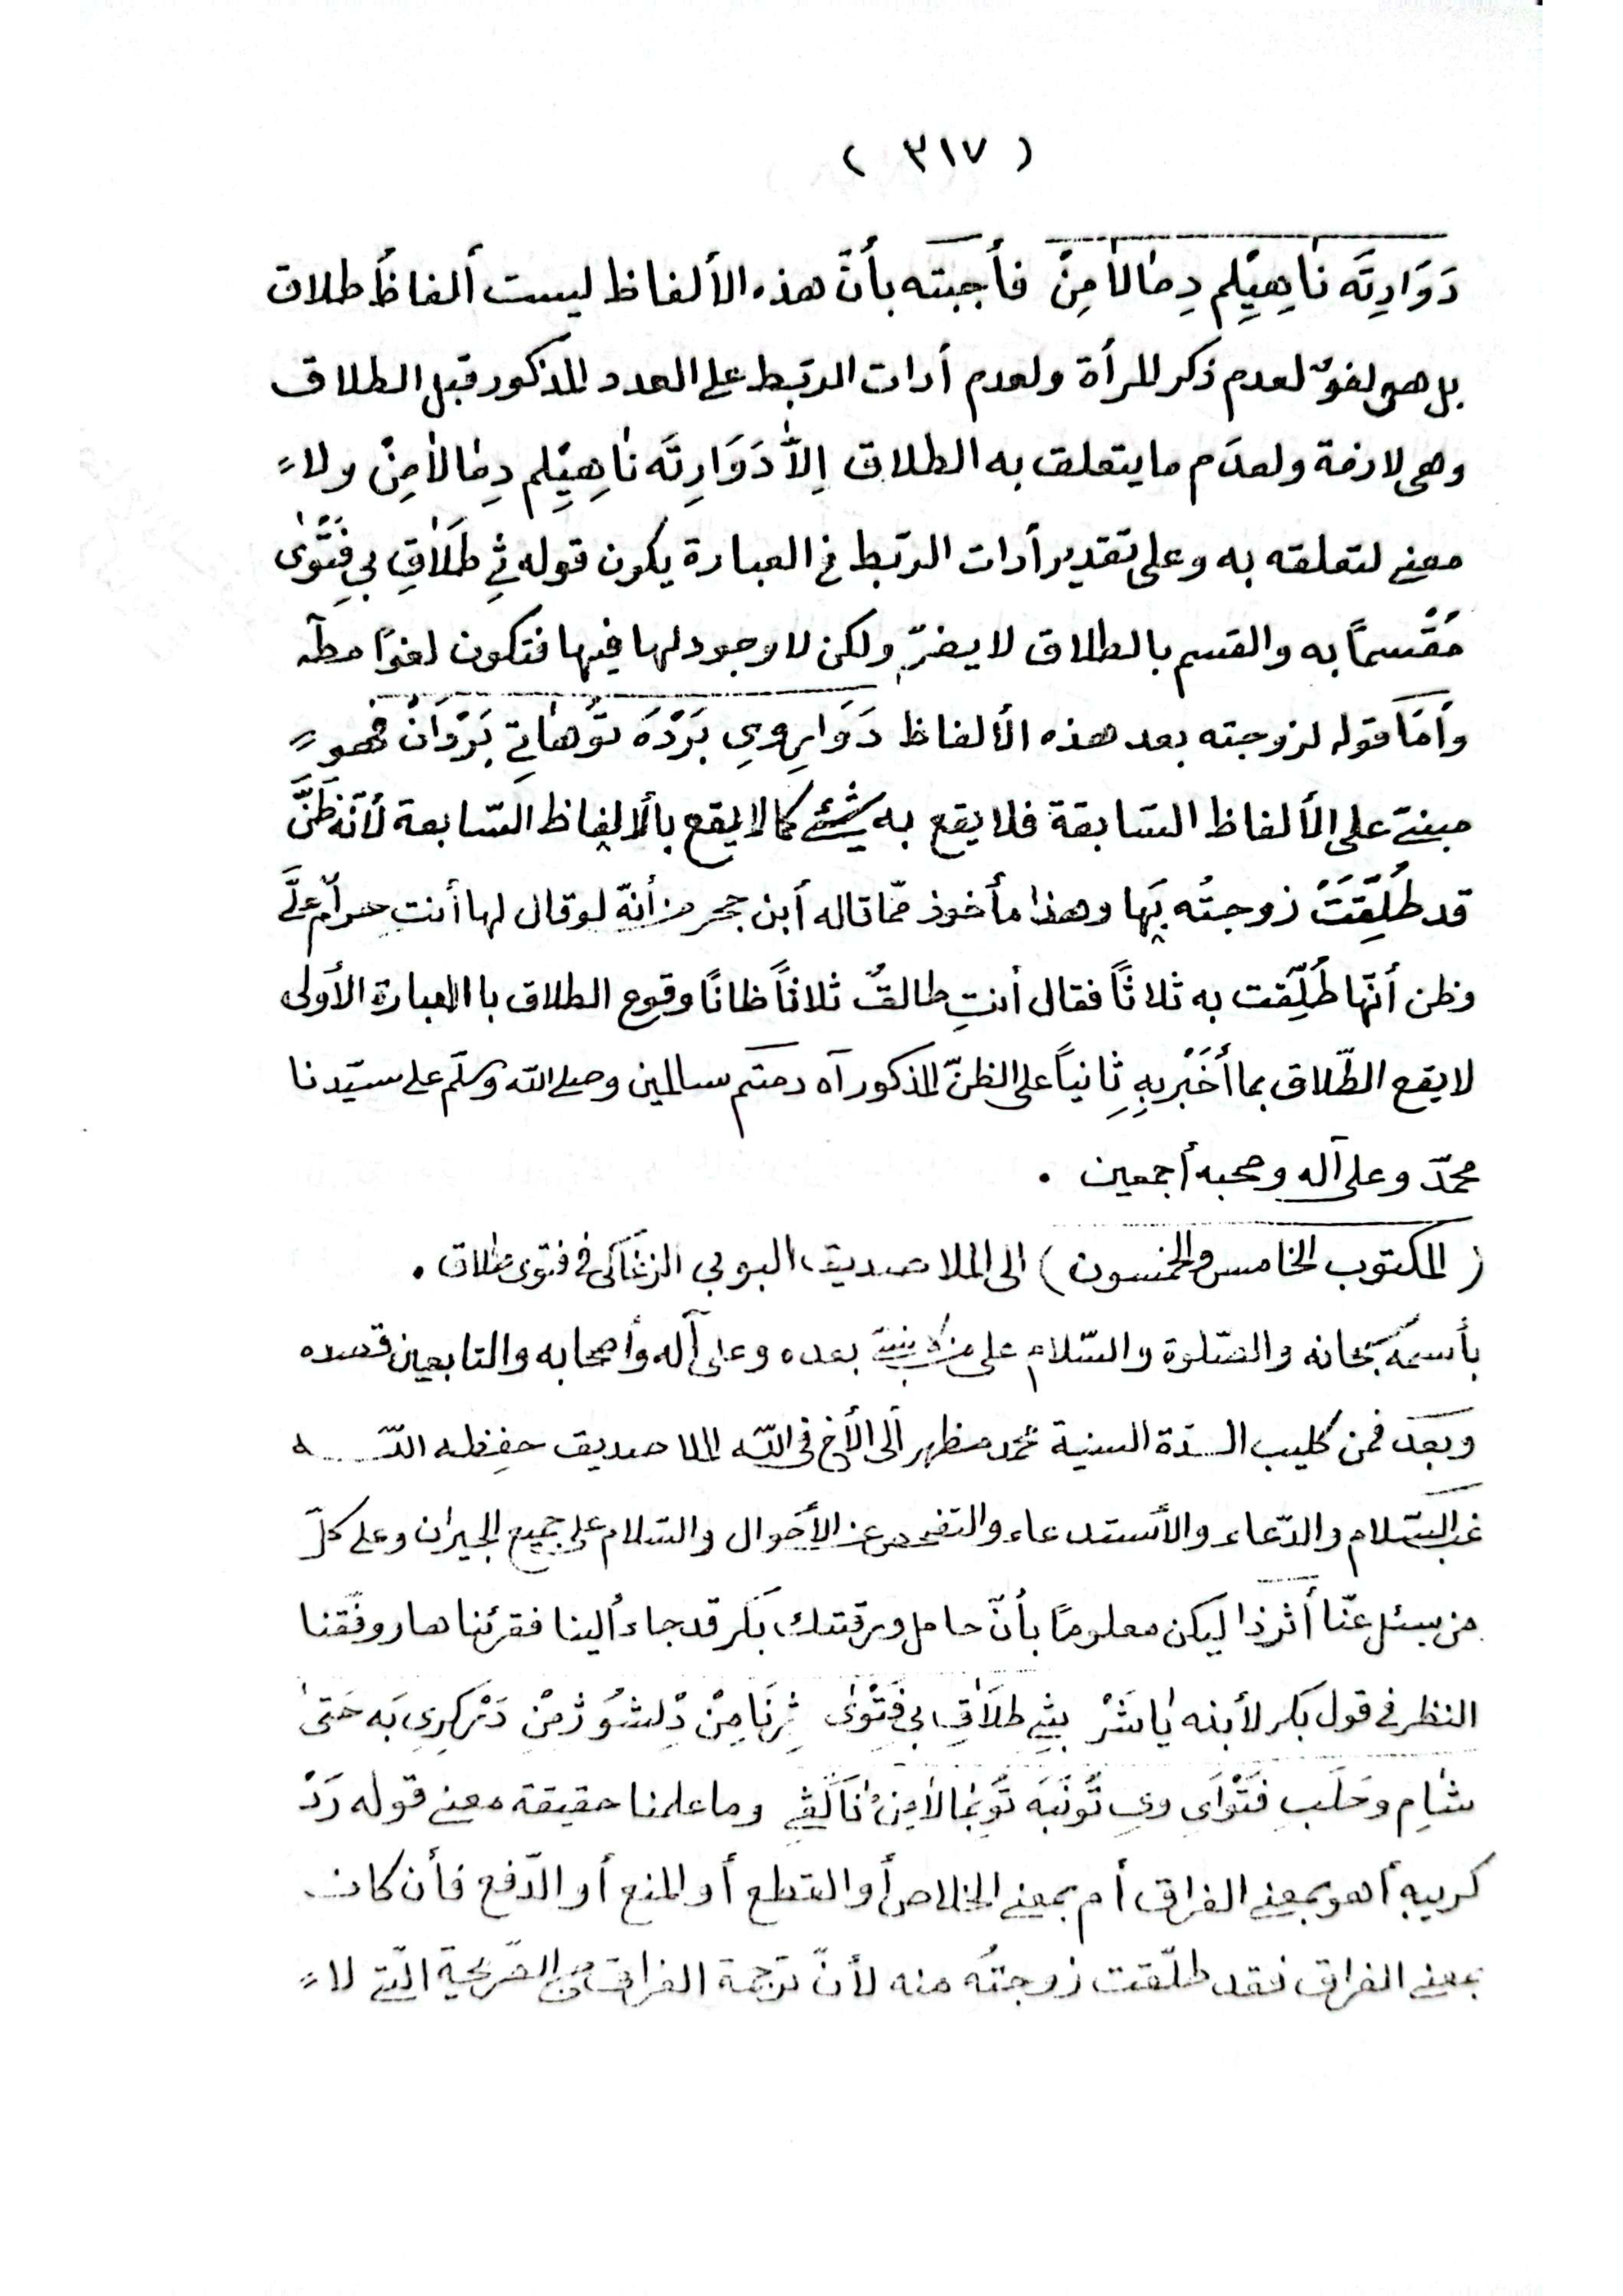 ( ٣١٧ )
دَوَارِتَه نَاهِيِلم دِمَالَامِنْ فأجبته بأنّ هذه الألفاظ ليست ألفاظَ طلاق
بل هى لغوٌ لعدم ذكر المرأة ولعدم أدات الربط على العدد المذكور قبل الطلاق
وهى لازمة ولعدَم ما يتعلق به الطلاق اِلَّا دَوَارِتَه نَاهِيِلم دِمَالَامِنْ ولا
معنى لتعلقه به وعلى تقدير أدات الربط فى العبارة يكون قوله ثِ طَلَاقِ بِى فِتْوٰى
مُقْسمًا به والقسم بالطلاق لا يضرّ ولكن لا وجود لها فيها فتكون لغوًا مطه
وأمّا قوله لزوجته بعد هذه الألفاظ دَوَارِ وِى بَرْدَه تُو هَاتِى بَرْدَانْ فهو
مبنىّ على الألفاظ السّابقة فلا يقع به شئ كما لا يقع بألالفاظ السّابعة لأنّه ظَنَّ
قد طُلِّقَتْ زوجتُه بِهَا وهذا مأخوذ ممّا قاله أبن حجر من أنّه لو قال لها أنت حرامٌ علَىَّ
وظن أنّها طُلِّقت به ثلاثًا فقال أنتِ طالقٌ ثلاثاً ظانًا وقوع الطلاق با العبارة الأولى
لا يقع الطّلاق بما أَخْبَر بِهِ ثانياً على الظنّ المذكور اه دمتم سالمين وصلى اللّه وسلّم على سيّدنا
محمّد وعلى آله وصحبه أجمعين .
( المكتوب الخامس والخمسون ) الى الملا صديق البوبى الزغاكى فى فتوى طلاق .
بأسمه سبحانه والصّلوة والسّلام على من لا نبىّ بعده وعلى آله وأصحابه والتابعين قصده
وبعد فمن كليب السدّة السنية محمّد مظهر ألى الأخ فى اللّه الملا صديق حفِظه اللّه
غبّ السّلام والدّعاء والأستدعاء والتفحص عن الأحوال والسّلام على جميع الجيران وعلى كلّ
من سئل عنّا أثرذا ليكن معلومًا بأنّ حامل ورقتك بَكر قد جاء ألينا فقرئناها ووفّقنا
النظر فى قول بكر لأبنه يَا بَشَرْ بِثِى طلَاقِ بِى فَتْوٰى ثِرنَا مِنْ دْلِشُو ژْمِنْ دَرْكَرِى بَه حَتٰى
شَامِ وحَلَب فَتْوَاى وِى تُونَبَه تُو بْمَالَامِنْ نَاكَفِى وما علمنا حقيقة معنى قوله رَدْ
كريبه أهو بمعنى الفراق أم بمعنى الخلاص أو القطع أو المنع أو الدّفع فأن كان
بمعنى الفراق فقد طلّقت زوجتُه منه لأنّ ترجمة الفراق من الصّريحة الّتى لا